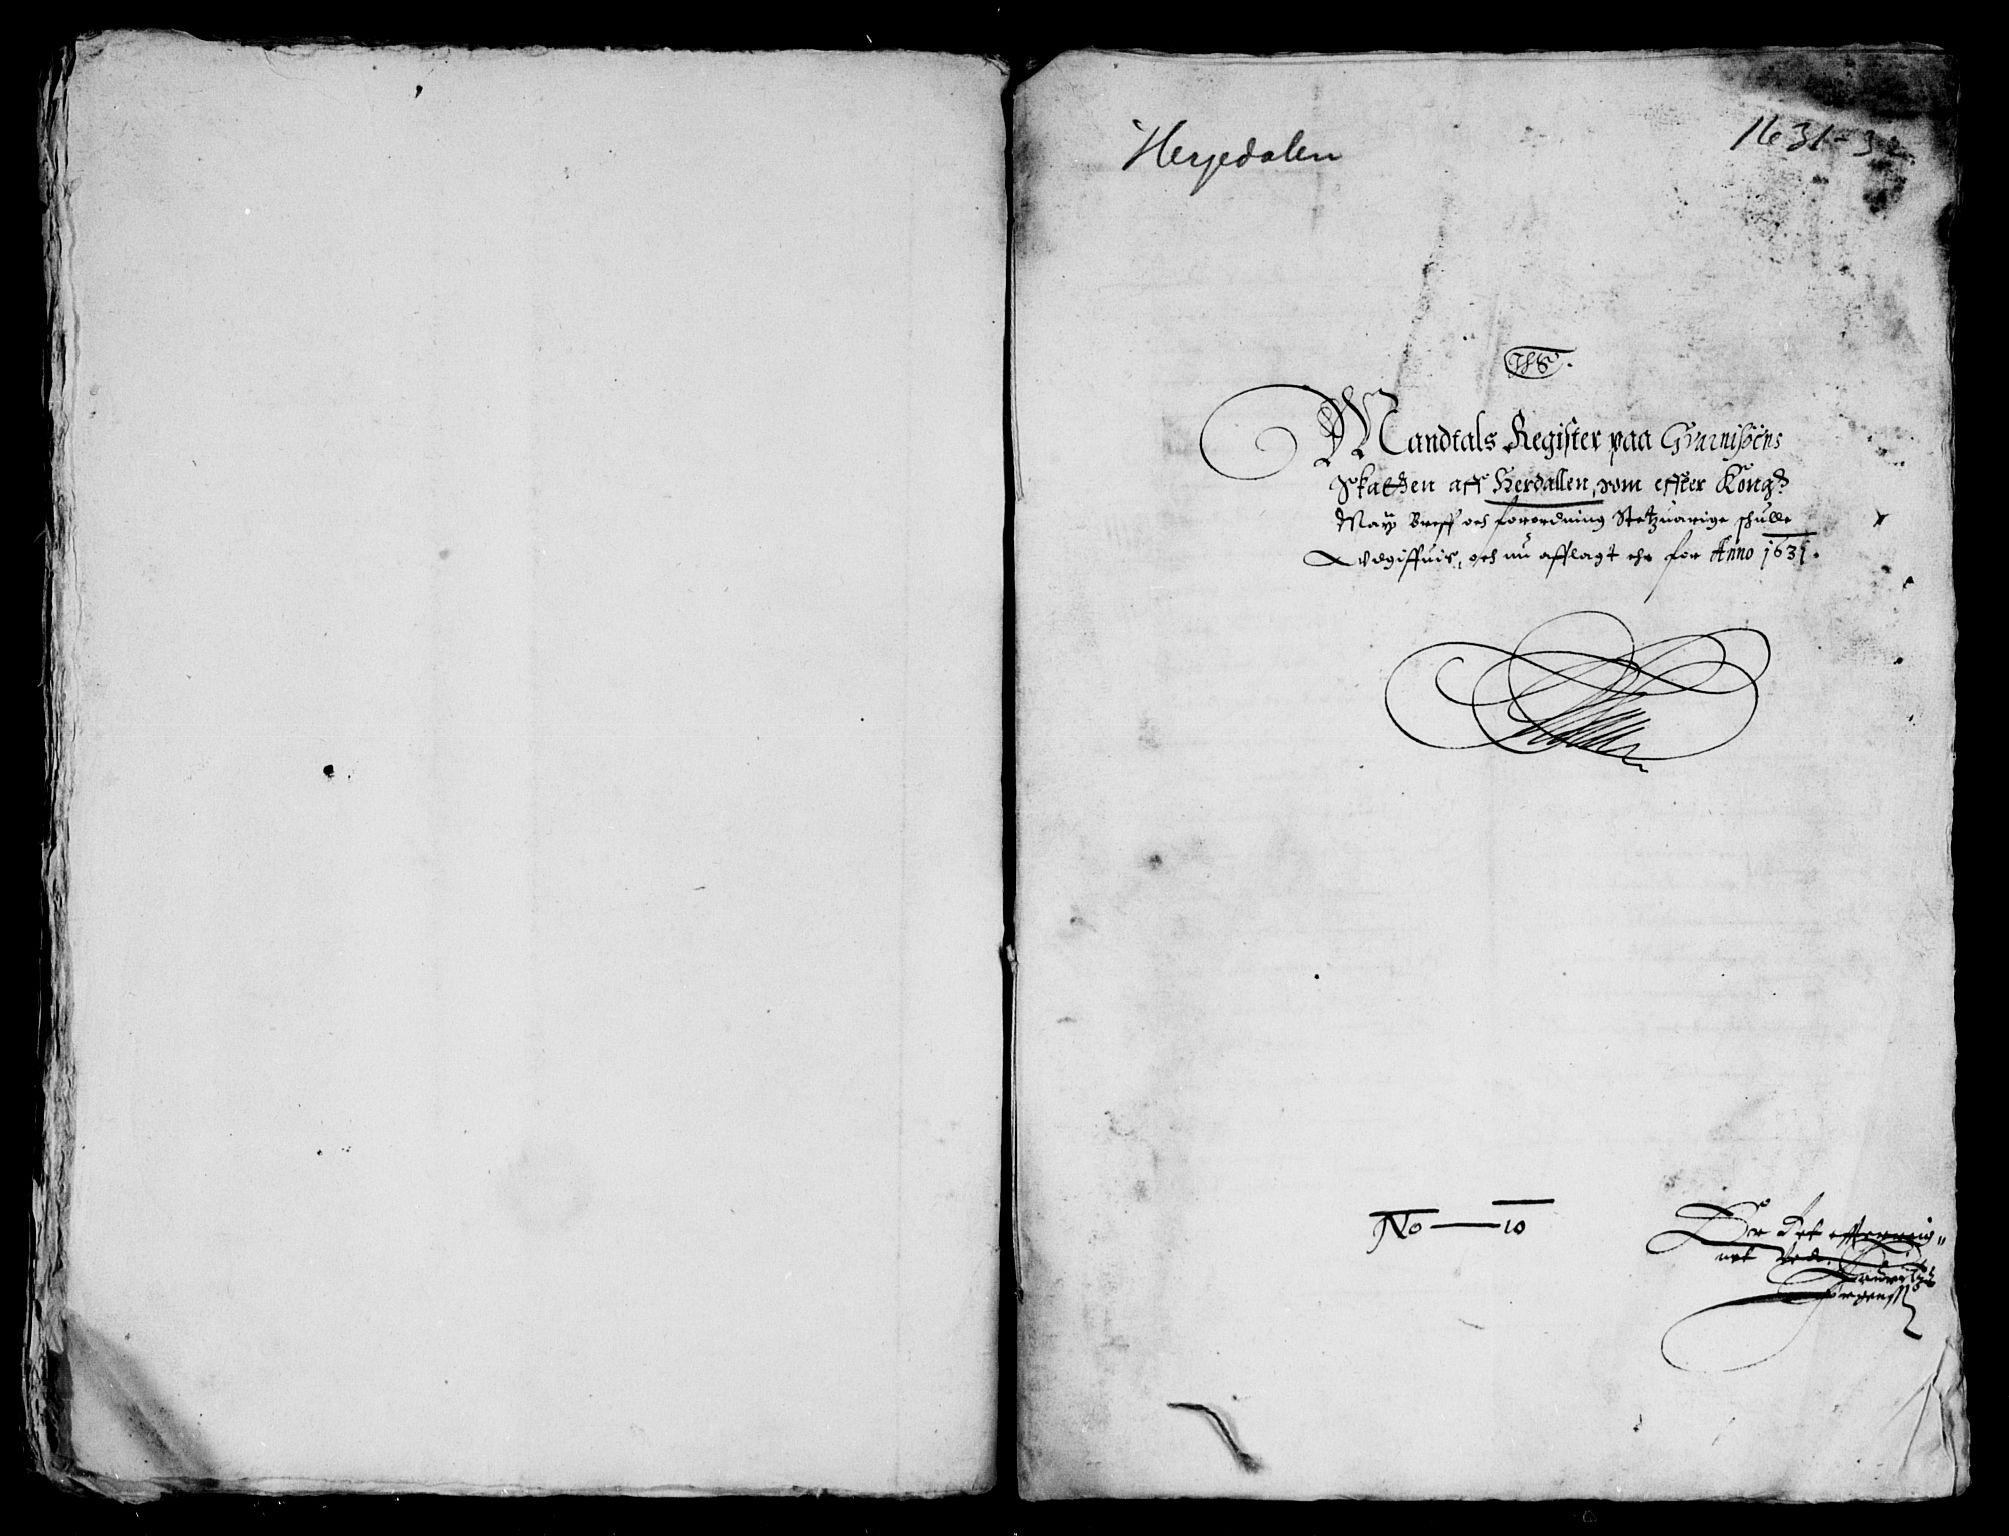 Herjedalen
1631-32.
JHS.
Mandtals Register paa Guarnisoens
Skatthen aff Herdallen, som effter Kong:
May: Breff och forordning Stetzuarige schulle
Udgiffuis, och nu afflagt ehr for Anno 1631.
No — 10
Er